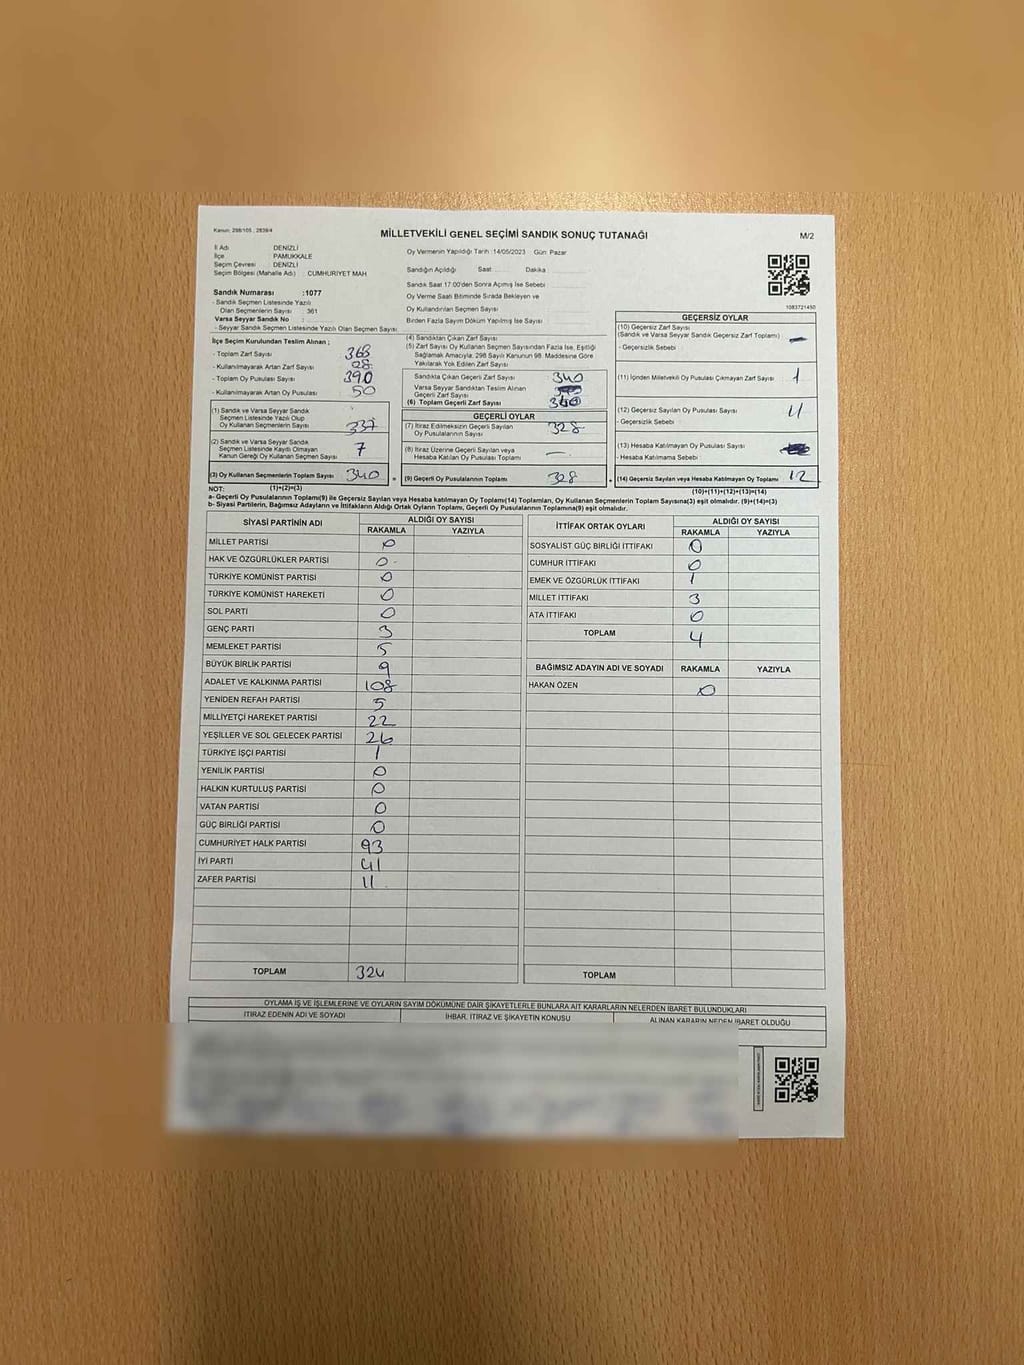 Kanun: 298/105 , 2839/4
MİLLETVEKİLİ GENEL SEÇİMİ SANDIK SONUÇ TUTANAĞI
M/2
İl Adı DENİZLİ
İlçe PAMUKKALE
Seçim Çevresi : DENİZLİ
Seçim Bölgesi (Mahalle Adı) : CUMHURİYET MAH
Oy Vermenin Yapıldığı Tarih :14/05/2023 Gün: Pazar
Sandığın Açıldığı Saat ...... Dakika
Sandık Saat 17:00'den Sonra Açılmış İse Sebebi
Oy Verme Saati Bitiminde Sırada Bekleyen ve
Oy Kullandırılan Seçmen Sayısı
Birden Fazla Sayım Döküm Yapılmış İse Sayısı
1083721450
Sandık Numarası :1077
- Sandık Seçmen Listesinde Yazılı
Olan Seçmenlerin Sayısı : 361
Varsa Seyyar Sandık No :
- Seyyar Sandık Seçmen Listesinde Yazılı Olan Seçmen Sayısı
İlçe Seçim Kurulundan Teslim Alınan ;
- Toplam Zarf Sayısı 368
- Kullanılmayarak Artan Zarf Sayısı 28
- Toplam Oy Pusulası Sayısı 390
- Kullanılmayarak Artan Oy Pusulası 50
(1) Sandık ve Varsa Seyyar Sandık
Seçmen Listesinde Yazılı Olup
Oy Kullanan Seçmenlerin Sayısı 337
(2) Sandık ve Varsa Seyyar Sandık
Seçmen Listesinde Kayıtlı Olmayan
Kanun Gereği Oy Kullanan Seçmen Sayısı 7
(3) Oy Kullanan Seçmenlerin Toplam Sayısı 340
(4) Sandıktan Çıkan Zarf Sayısı
(5) Zarf Sayısı Oy Kullanan Seçmen Sayısından Fazla İse, Eşitliği
Sağlamak Amacıyla; 298 Sayılı Kanunun 98. Maddesine Göre
Yakılarak Yok Edilen Zarf Sayısı
Sandıkta Çıkan Geçerli Zarf Sayısı : 340
Varsa Seyyar Sandıktan Teslim Alınan
Geçerli Zarf Sayısı
(6) Toplam Geçerli Zarf Sayısı 340
GEÇERLİ OYLAR
(7) İtiraz Edilmeksizin Geçerli Sayılan
Oy Pusulalarının Sayısı 328
(8) İtiraz Üzerine Geçerli Sayılan veya
Hesaba Katılan Oy Pusulası Toplamı —
= (9) Geçerli Oy Pusulalarının Toplamı 328
GEÇERSİZ OYLAR
(10) Geçersiz Zarf Sayısı
(Sandık ve Varsa Seyyar Sandık Geçersiz Zarf Toplamı) —
- Geçersizlik Sebebi
(11) İçinden Milletvekili Oy Pusulası Çıkmayan Zarf Sayısı 1
(12) Geçersiz Sayılan Oy Pusulası Sayısı 11
- Geçersizlik Sebebi
(13) Hesaba Katılmayan Oy Pusulası Sayısı
- Hesaba Katılmama Sebebi
+ (14) Geçersiz Sayılan veya Hesaba Katılmayan Oy Toplamı 12
NOT: (1)+(2)=(3) (10)+(11)+(12)+(13)=(14)
a- Geçerli Oy Pusulalarının Toplamı(9) ile Geçersiz Sayılan veya Hesaba katılmayan Oy Toplamı(14) Toplamları, Oy Kullanan Seçmenlerin Toplam Sayısına(3) eşit olmalıdır. (9)+(14)=(3)
b- Siyasi Partilerin, Bağımsız Adayların ve İttifakların Aldığı Ortak Oyların Toplamı, Geçerli Oy Pusulalarının Toplamına(9) eşit olmalıdır.
SİYASİ PARTİNİN ADI ALDIĞI OY SAYISI
RAKAMLA YAZIYLA
MİLLET PARTİSİ 0
HAK VE ÖZGÜRLÜKLER PARTİSİ 0
TÜRKİYE KOMÜNİST PARTİSİ 0
TÜRKİYE KOMÜNİST HAREKETİ 0
SOL PARTİ 0
GENÇ PARTİ 3
MEMLEKET PARTİSİ 5
BÜYÜK BİRLİK PARTİSİ 9
ADALET VE KALKINMA PARTİSİ 108
YENİDEN REFAH PARTİSİ 5
MİLLİYETÇİ HAREKET PARTİSİ 22
YEŞİLLER VE SOL GELECEK PARTİSİ 26
TÜRKİYE İŞÇİ PARTİSİ 1
YENİLİK PARTİSİ 0
HALKIN KURTULUŞ PARTİSİ 0
VATAN PARTİSİ 0
GÜÇ BİRLİĞİ PARTİSİ 0
CUMHURİYET HALK PARTİSİ 93
İYİ PARTİ 41
ZAFER PARTİSİ 11
TOPLAM 324
İTTİFAK ORTAK OYLARI ALDIĞI OY SAYISI
RAKAMLA YAZIYLA
SOSYALİST GÜÇ BİRLİĞİ İTTİFAKI 0
CUMHUR İTTİFAKI 0
EMEK VE ÖZGÜRLÜK İTTİFAKI 1
MİLLET İTTİFAKI 3
ATA İTTİFAKI 0
TOPLAM 4
BAĞIMSIZ ADAYIN ADI VE SOYADI RAKAMLA YAZIYLA
HAKAN ÖZEN 0
TOPLAM
OYLAMA İŞ VE İŞLEMLERİNE VE OYLARIN SAYIM DÖKÜMÜNE DAİR ŞİKAYETLERLE BUNLARA AİT KARARLARIN NELERDEN İBARET BULUNDUKLARI
İTİRAZ EDENİN ADI VE SOYADI İHBAR, İTİRAZ VE ŞİKAYETİN KONUSU ALINAN KARARIN NEDEN İBARET OLDUĞU